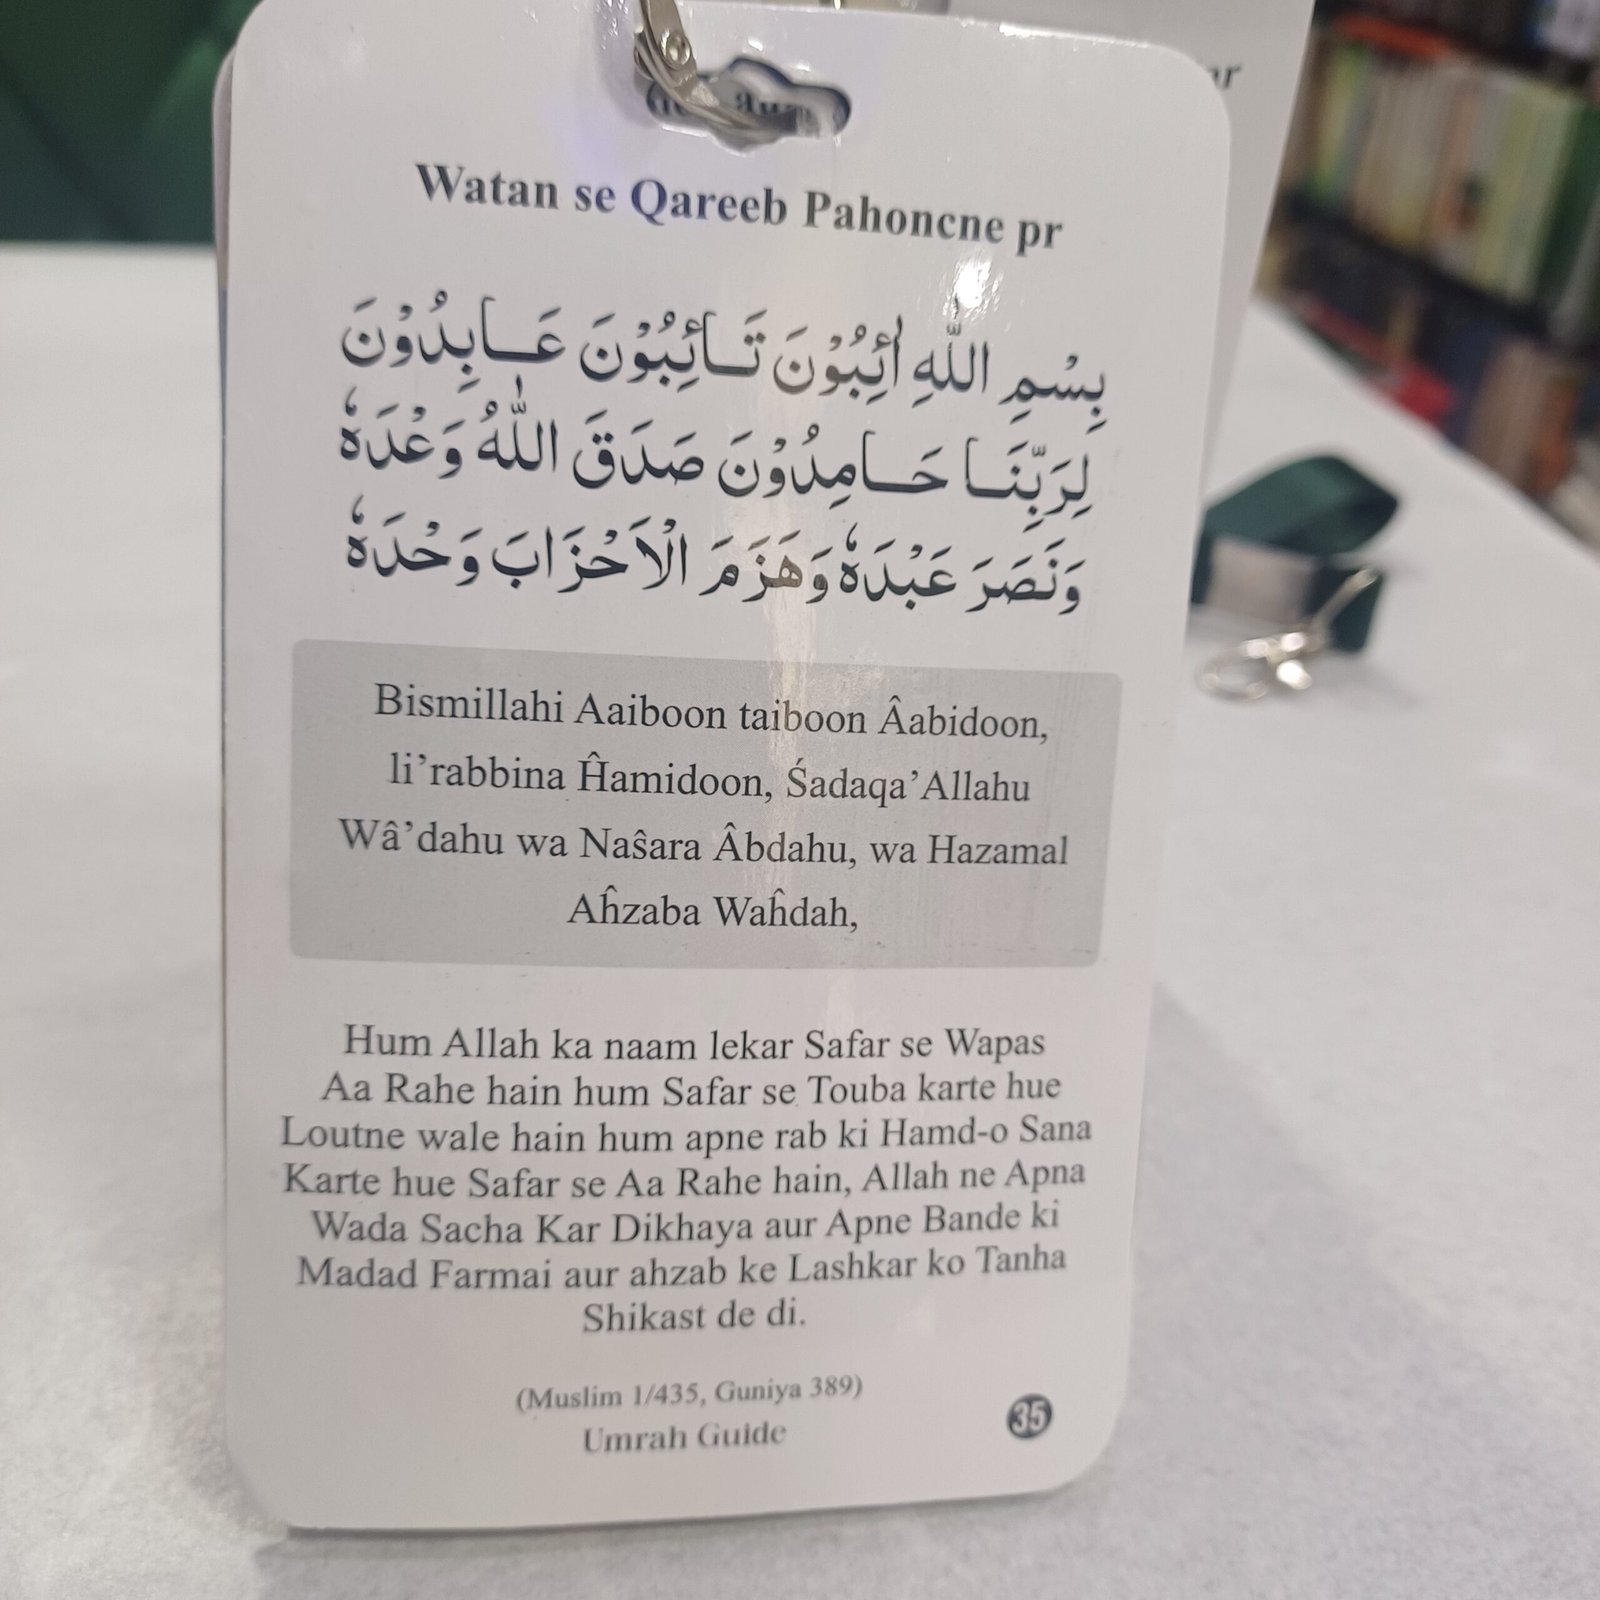 Watan se Qareeb Pahoncne pr
بِسْمِ اللّٰهِ اٰئِبُوْنَ تَــائِبُوْنَ عَــابِدُوْنَ
لِرَبِّنَــا حَــامِدُوْنَ صَدَقَ اللّٰهُ وَعْدَهٗ
وَنَصَرَ عَبْدَهٗ وَهَزَمَ الْاَحْزَابَ وَحْدَهٗ
Bismillahi Aaiboon taiboon Âabidoon,
li’rabbina Ĥamidoon, Śadaqa’Allahu
Wâ’dahu wa Naŝara Âbdahu, wa Hazamal
Aĥzaba Waĥdah,
Hum Allah ka naam lekar Safar se Wapas
Aa Rahe hain hum Safar se Touba karte hue
Loutne wale hain hum apne rab ki Hamd-o Sana
Karte hue Safar se Aa Rahe hain, Allah ne Apna
Wada Sacha Kar Dikhaya aur Apne Bande ki
Madad Farmai aur ahzab ke Lashkar ko Tanha
Shikast de di.
(Muslim 1/435, Guniya 389)
Umrah Guide
35